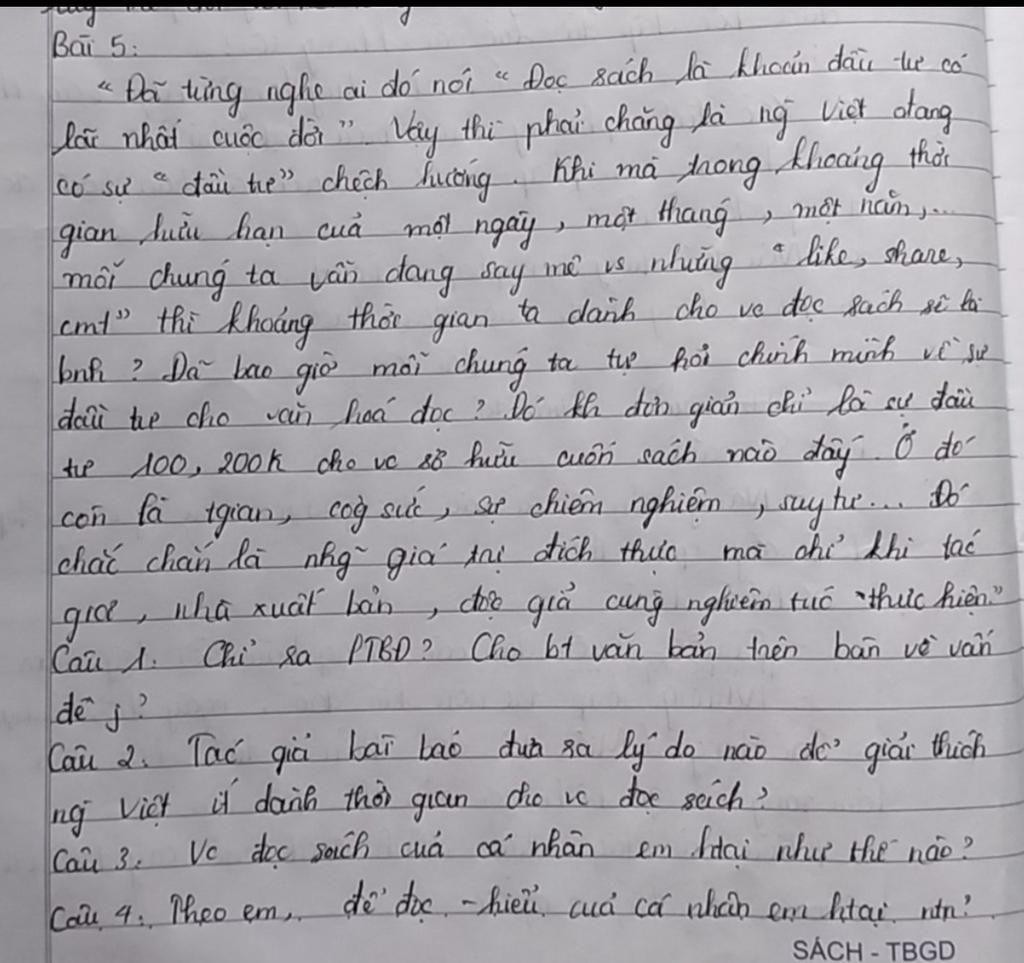 Bài 5:
“Đã từng nghe ai đó nói “Đọc sách là khoản đầu tư có
lãi nhất cuộc đời”. Vậy thì phải chăng là ng̃ Việt đang
có sự “đầu tư” chệch hướng. Khi mà trong khoảng thời
gian hữu hạn của một ngày, một tháng, một năm,...
mỗi chúng ta vẫn đang say mê vs những “like, share,
cmt” thì khoảng thời gian ta dành cho vc đọc sách sẽ là
bnh? Đã bao giờ mỗi chúng ta tự hỏi chính mình về sự
đầu tư cho văn hoá đọc? Đó kh đơn giản chỉ là sự đầu
tư 100, 200k cho vc sở hữu cuốn sách nào đấy. Ở đó
còn là tgian, cog̀ sức, sự chiêm nghiệm, suy tư... Đó
chắc chắn là nhg̃ giá trị đích thực mà chỉ khi tác
giả, nhà xuất bản, độc giả cùng nghiêm túc “thực hiện.”
Câu 1. Chỉ ra PTBĐ? Cho bt văn bản trên bàn về vấn
đề j?
Câu 2. Tác giả bài báo đưa ra lý do nào để giải thích
ng̃ Việt ít dành thời gian cho vc đọc sách?
Câu 3. Vc đọc sách của cá nhân em htại như thế nào?
Câu 4. Theo em, để đọc - hiểu của cá nhân em htại ntn?
SÁCH - TBGD